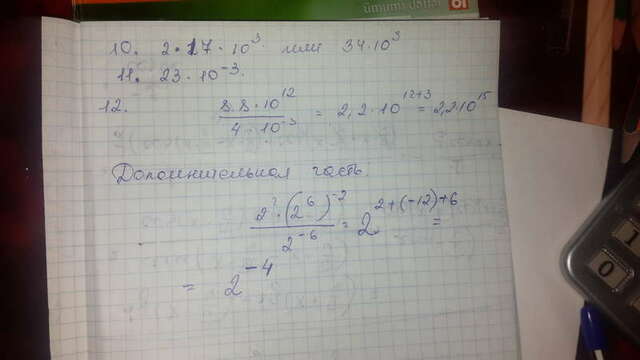 ümumi dəhər
10. 2 · 17 · 10³ или 34·10³
11. 23 · 10⁻³.
12. 8.8·10¹² / 4·10⁻³ = 2,2·10¹²⁺³ = 2,2·10¹⁵
Дополнительная часть.
2² · (2⁶)⁻² / 2⁻⁶ = 2²⁺⁽⁻¹²⁾⁺⁶ =
= 2⁻⁴
1
0